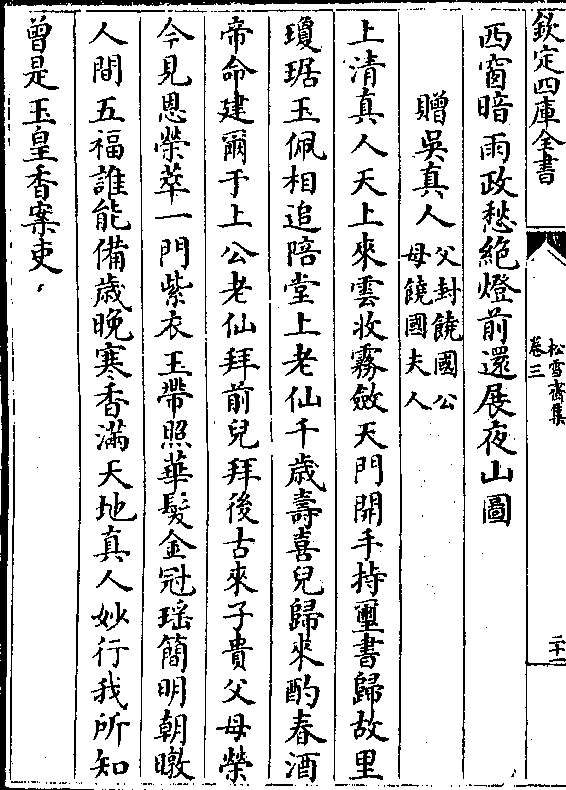 欽定四庫全書
松雪齋集
卷三
二十一
西窗暗雨政愁絶燈前還展夜山圖
贈吳真人父封饒國公母饒國夫人
上清真人天上來雲收霧斂天門開手持璽書歸故里
瓊琚玉佩相追陪堂上老仙千歳壽喜兒歸來酌春酒
帝命建爾于上公老仙拜前兒拜後古來子貴父母榮
今見恩榮萃一門紫衣玉帶照華髮金冠瑶簡明朝暾
人間五福誰能備歳晚寒香滿天地真人妙行我所知
曾是玉皇香案吏